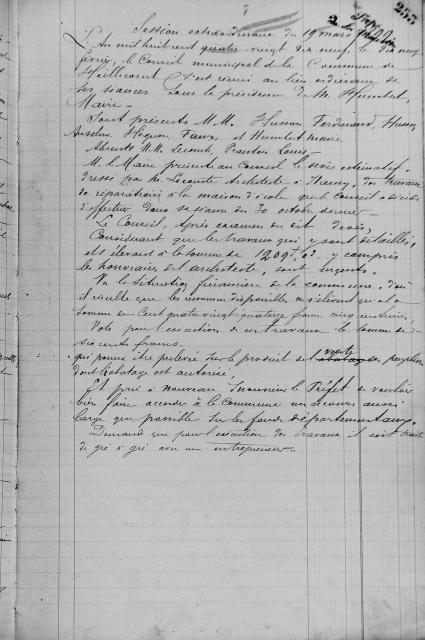 233
Session extraordinaire du 19 mars
L'An mil huit cent quatre vingt dix neuf, le dix neuf
février, le Conseil municipal de la Commune de
Heillecourt s'est réuni au lieu ordinaire de
ses séances sous la présidence de M. Humbert,
Maire.
Sont présents M.M. Husson Ferdinand, Husson
Anselme, Hoquon, Faux, et Humbert maire
Absents M.M. Lecomte, Louis
M. le Maire présente au Conseil le devis estimatif
dressé par M. Lecomte Architecte à Nancy, des travaux
de réparations à la maison d'école que le Conseil a décidé
d'effectuer dans sa séance du 30 octobre dernier.
Le Conseil, après examen du dit devis,
Considérant que les travaux qui y sont détaillés,
et s'élevant à la somme de y compris
les honoraires de l'architecte, sont urgents.
Vu la situation financière de la commune, d'où
il résulte que les ressources disponibles ne s'élèvent qu'à la
somme de Cent quatre vingt quatorze francs cinq centimes,
Vote pour l'exécution de ces travaux la somme de
six cents francs.
qui pourra être prélevée sur le produit de la vente des peupliers
dont l'abatage est autorisée.
Et prie à nouveau Monsieur le Préfet de vouloir
bien faire accorder à la Commune un secours aussi
large que possible sur les fonds départementaux.
Demande que pour l'exécution des travaux il soit traité
de gré à gré avec un entrepreneur.